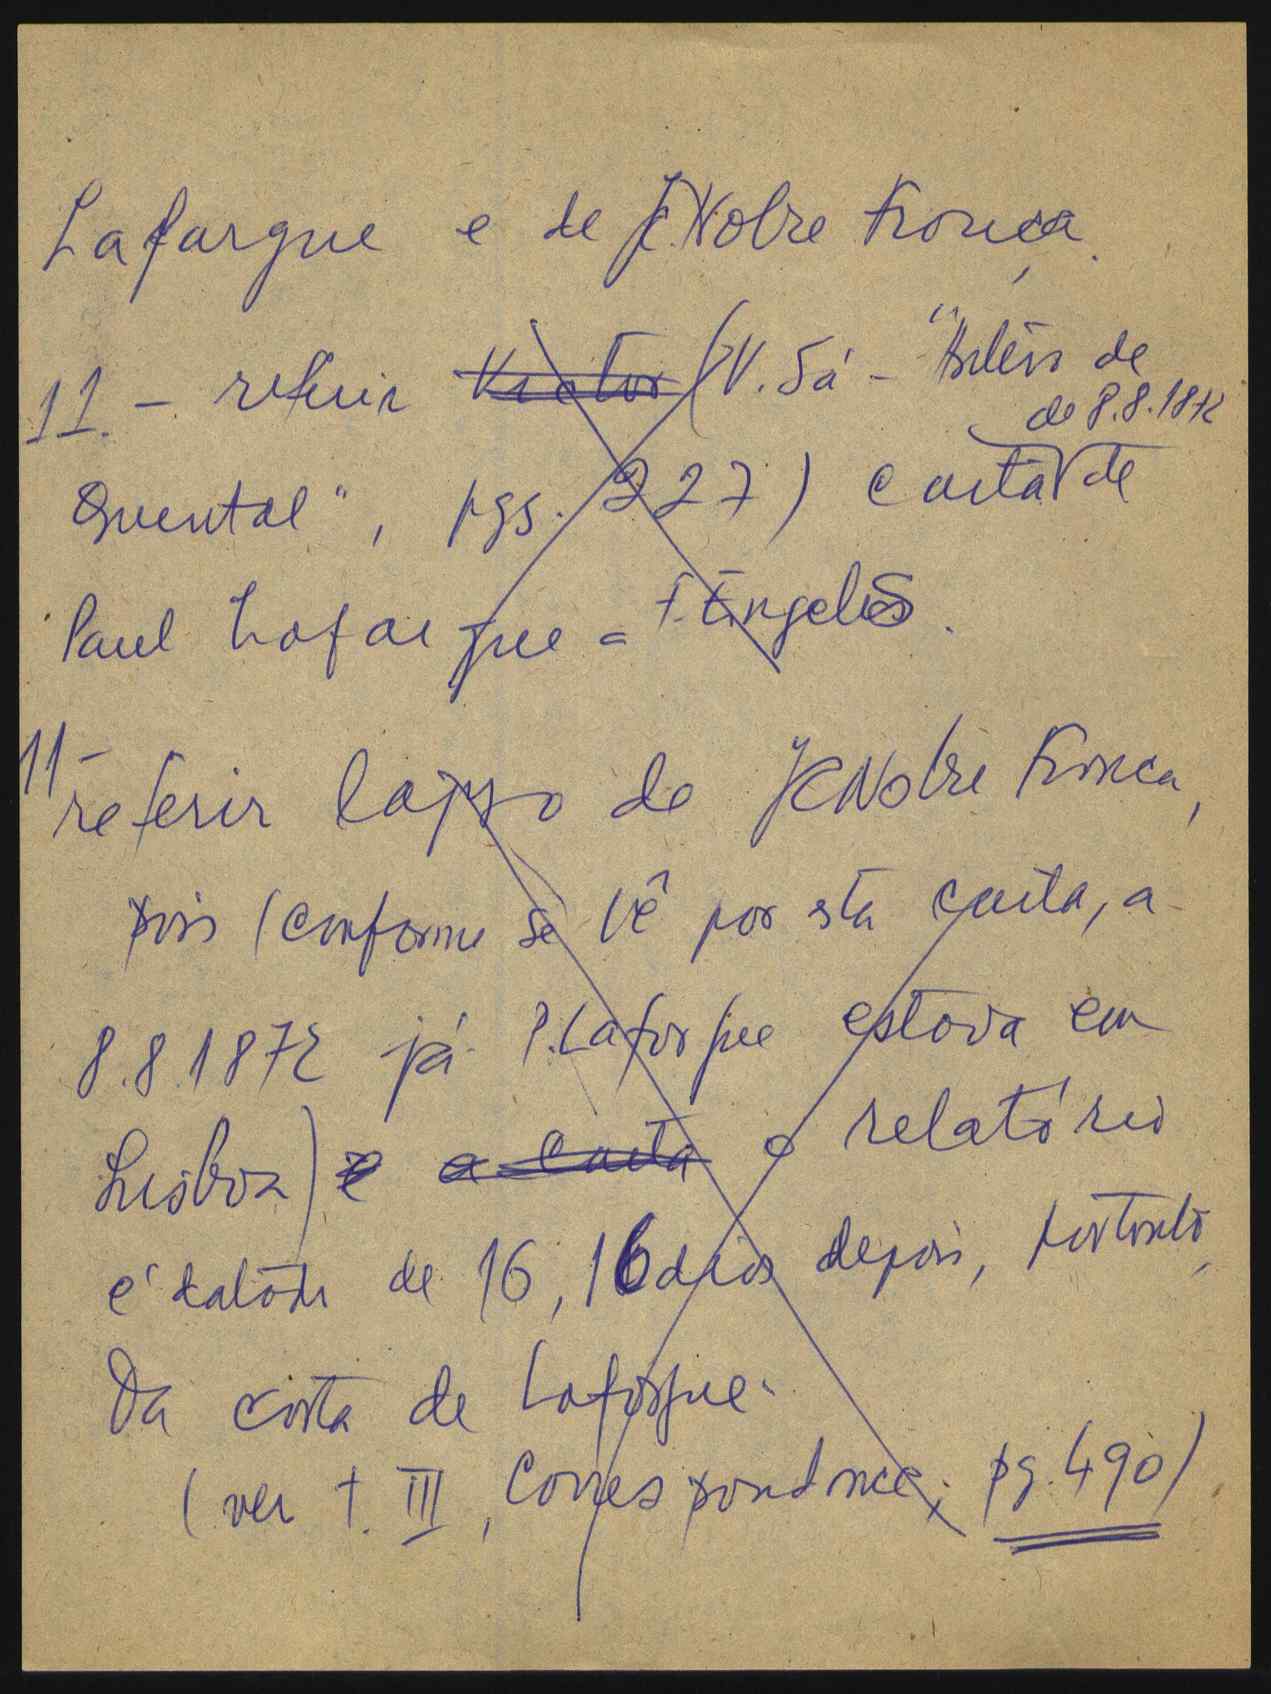 Lafargue e de J.C. Nobre França.
11. - referir Victor (V. Sá - "Antero de
de 8.8.1872
Quental", pgs. 227) carta de
Paul Lafargue a F. Engels.
11 -
referir lapso de JC Nobre França,
pois (conforme se vê por esta carta, a
8.8.1872 já P. Lafargue estava em
Lisboa) e a carta o relatório
é datado de 16, 16 dias depois, portanto,
Da carta de Lafargue.
(ver t. III, Correspondance, pg. 490)